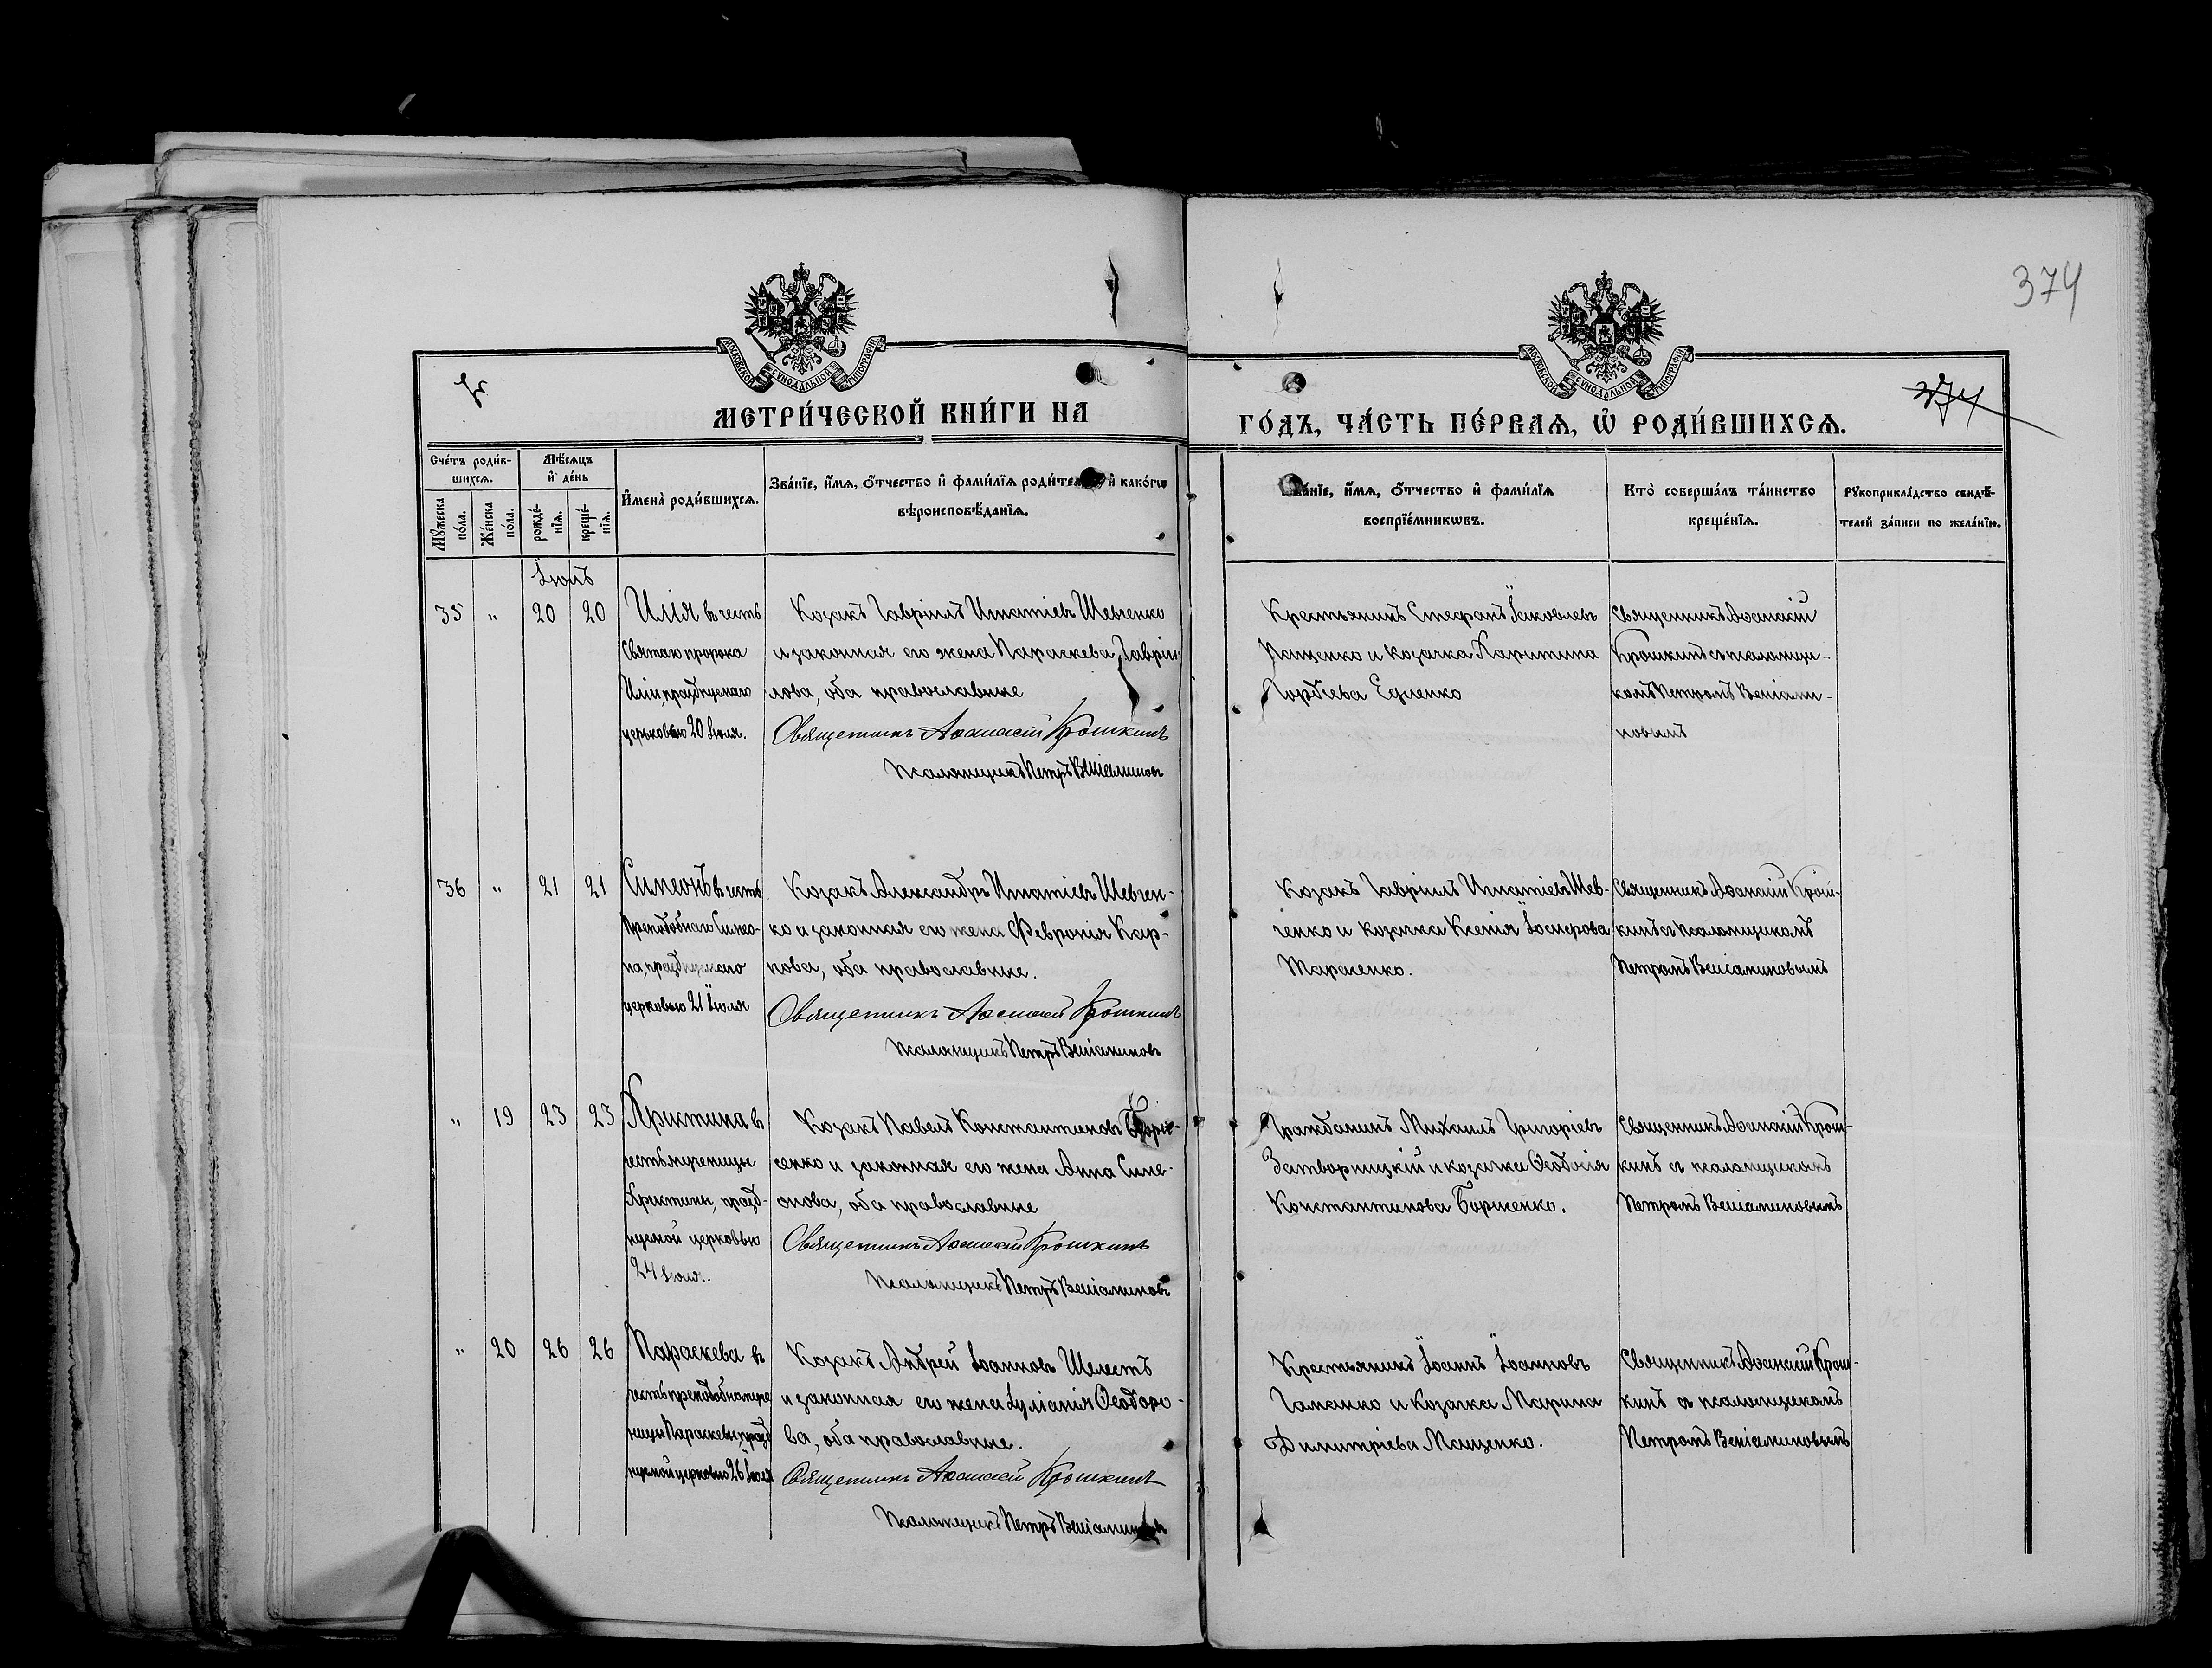 374
МОСКОВСКОЙ СУНОДАЛЬНОЙ ТИПОГРАФІИ
МОСКОВСКОЙ СУНОДАЛЬНОЙ ТИПОГРАФІИ
374
МЕТРИ́ЧЕСКОЙ КНИ́ГИ НА
ГО́ДЪ, ЧА́СТЬ ПЕ́РВАѦ, Ѡ҆ РОДИ́ВШИХСѦ.
Сче́тъ роди́в-
шихсѧ.
Мѣ́сѧцъ
и҆ де́нь
Мꙋ́жеска по́ла.
Же́нска по́ла.
рожде́-нїѧ.
креще́-нїѧ.
И҆мена̀ роди́вшихсѧ.
Зва́нїе, и҆́мѧ, ѻ҆́тчество и҆ фами́лїѧ роди́тел и҆ како́гѡ
вѣроисповѣ́данїѧ.
Зва́нїе, и҆́мѧ, ѻ҆́тчество и҆ фами́лїѧ
воспрїе́мникѡвъ.
Кто̀ соверша́лъ та́инство
креще́нїѧ.
Рꙋкоприкла́дство свидѣ́-
телей за́писи по жела́нїю.
Іюль
35 " 20 20
Илія въ честь
Святаго пророка
Иліи, празднуемаго
церковью 20 Іюля.
Козакъ Гавріилъ Игнатіевъ Шевченко
и законная его жена Параскева Гаврiи-
лова, оба православные
Священникъ Аѳанасій Крошкинъ
Псаломщикъ Петръ Веніаминовъ
Крестьянинъ Стефанъ Іаковлевъ
Пащенко и козачка Харитина
Гордіева Еценко
Священникъ Аѳанасій
Крошкинъ съ псаломщи-
комъ Петромъ Веніами-
новымъ
36 " 21 21
Симеонъ въ честь
Преподобнаго Симео-
на, празднуемаго
церковью 21 Іюля
Козакъ Александръ Игнатіевъ Шевчен-
ко и законная его жена Февронія Кар-
пова, оба православные.
Священникъ Аѳанасій Крошкинъ
Псаломщикъ Петръ Веніаминовъ
Козакъ Гавріилъ Игнатіевъ Шев-
ченко и козачка Ксенія Іосифова
Тарасенко.
Священникъ Аѳанасій Крош-
кинъ съ псаломщикомъ
Петромъ Веніаминовымъ
" 19 23 23
Христина въ
честь мученицы
Христины, празд-
нуемой церковью
24 Іюля.
Козакъ Павелъ Константиновъ
сенко и законная его жена Анна Симе-
онова, оба православные
Священникъ Аѳанасій Крошкинъ
Псаломщикъ Петръ Веніаминовъ
Гражданинъ Михаилъ Григоріевъ
Затворницкій и козачка Ѳеодосія
Константинова
Священникъ Аѳанасій Крош-
кинъ съ псаломщикомъ
Петромъ Веніаминовымъ
" 20 26 26
Параскева въ
честь преподобномуче
ницы Параскевы, празд
нуемой церковью 26 Іюля
Козакъ Андрей Іоанновъ Шелестъ
и законная его жена Іуліанія Ѳеодоро-
ва, оба православные.
Священникъ Аѳанасій Крошкинъ
Псаломщикъ Петръ Веніаминовъ
Крестьянинъ Іоаннъ Іоанновъ
Гаманко и козачка Марина
Димитріева Мащенко.
Священникъ Аѳанасій Крош-
кинъ съ псаломщикомъ
Петромъ Веніаминовымъ